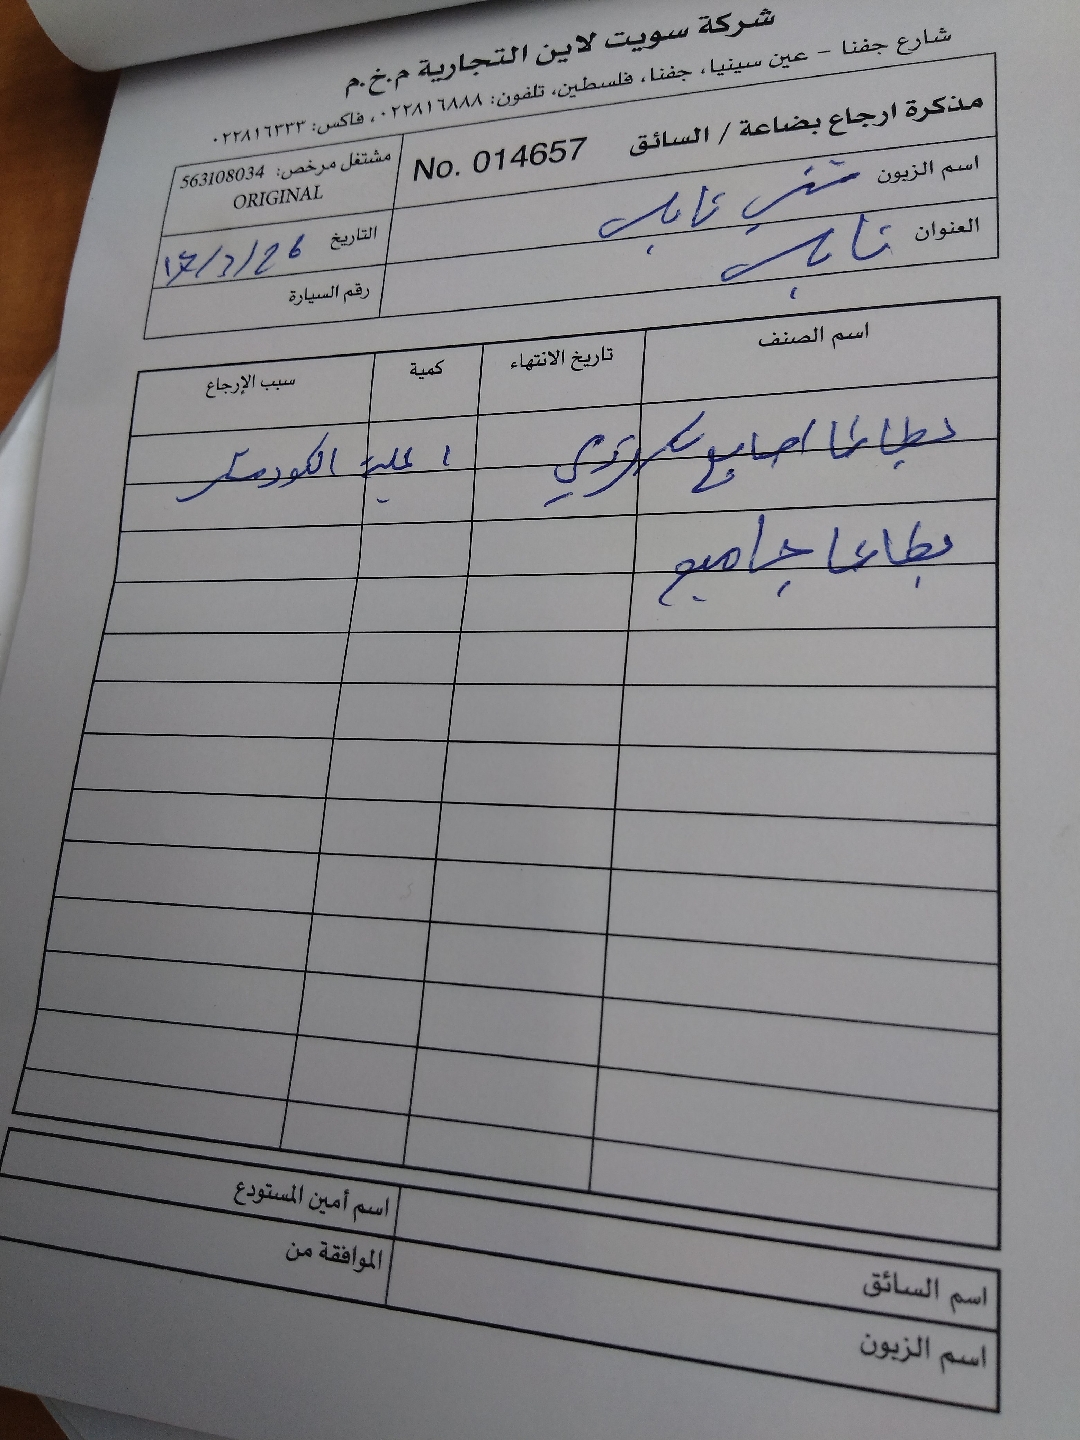 شركة سويت لاين التجارية م.خ.م
شارع جفنا – عين سينيا، جفنا، فلسطين، تلفون: ٠٢٢٨١٦٨٨٨، فاكس: ٠٢٢٨١٦٣٣٣
مذكرة ارجاع بضاعة / السائق No. 014657
مشتغل مرخص: 563108034
ORIGINAL
اسم الزبون
التاريخ
العنوان
رقم السيارة
اسم الصنف تاريخ الانتهاء كمية سبب الإرجاع
بطاطا اصابع ١ علبة
بطاطا
اسم أمين المستودع
الموافقة من
اسم السائق
اسم الزبون